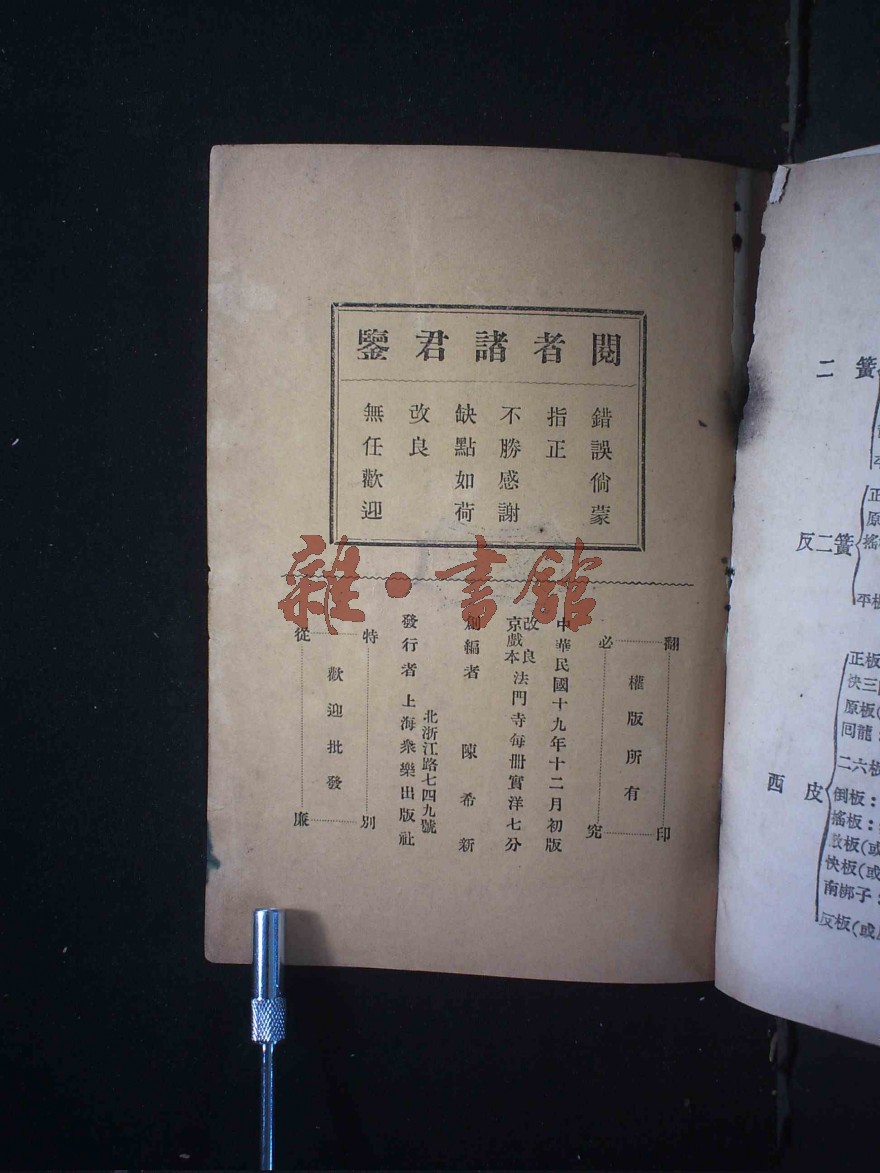 閱者諸君鑒
錯誤倘蒙
指正
不勝感謝
缺點如荷
改良
無任歡迎
雜·書館
翻印必究
權版所有
中華民國十九年十二月初版
改良京戲本 法門寺每冊實洋七分
創編者 陳希新
北浙江路七四九號
發行者 上海衆樂出版社
特別從廉
歡迎批發
二簧
反二簧
正
原
搖
平板
西皮
正板
快三
原板(
回龍:
二六板
倒板:
搖板:
散板(或
快板(或
南梆子:
反板(或